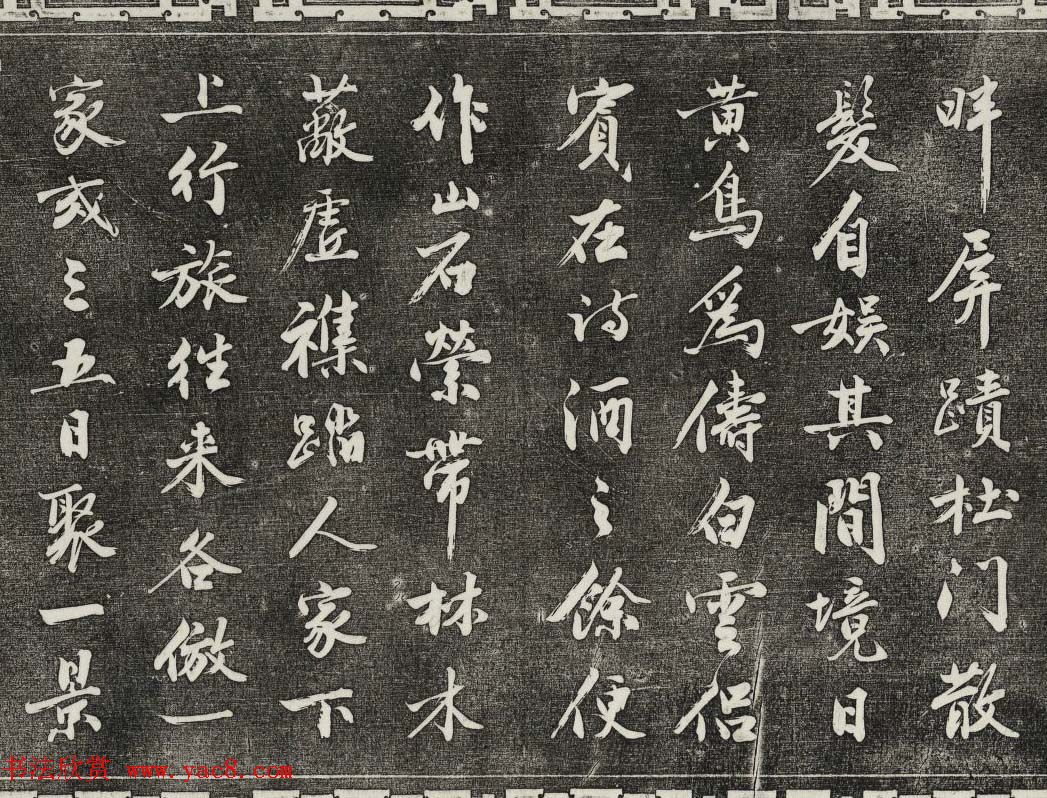 畔屏蹟杜门散
髮自娱其間境日
黄鳥爲儔白雲侣
賓在诗酒之餘便
作山石縈帶林木
蔽虛襍踏人家下
上行旅往来各倣一
家或三五日聚一景
书法欣赏 www.yac8.com